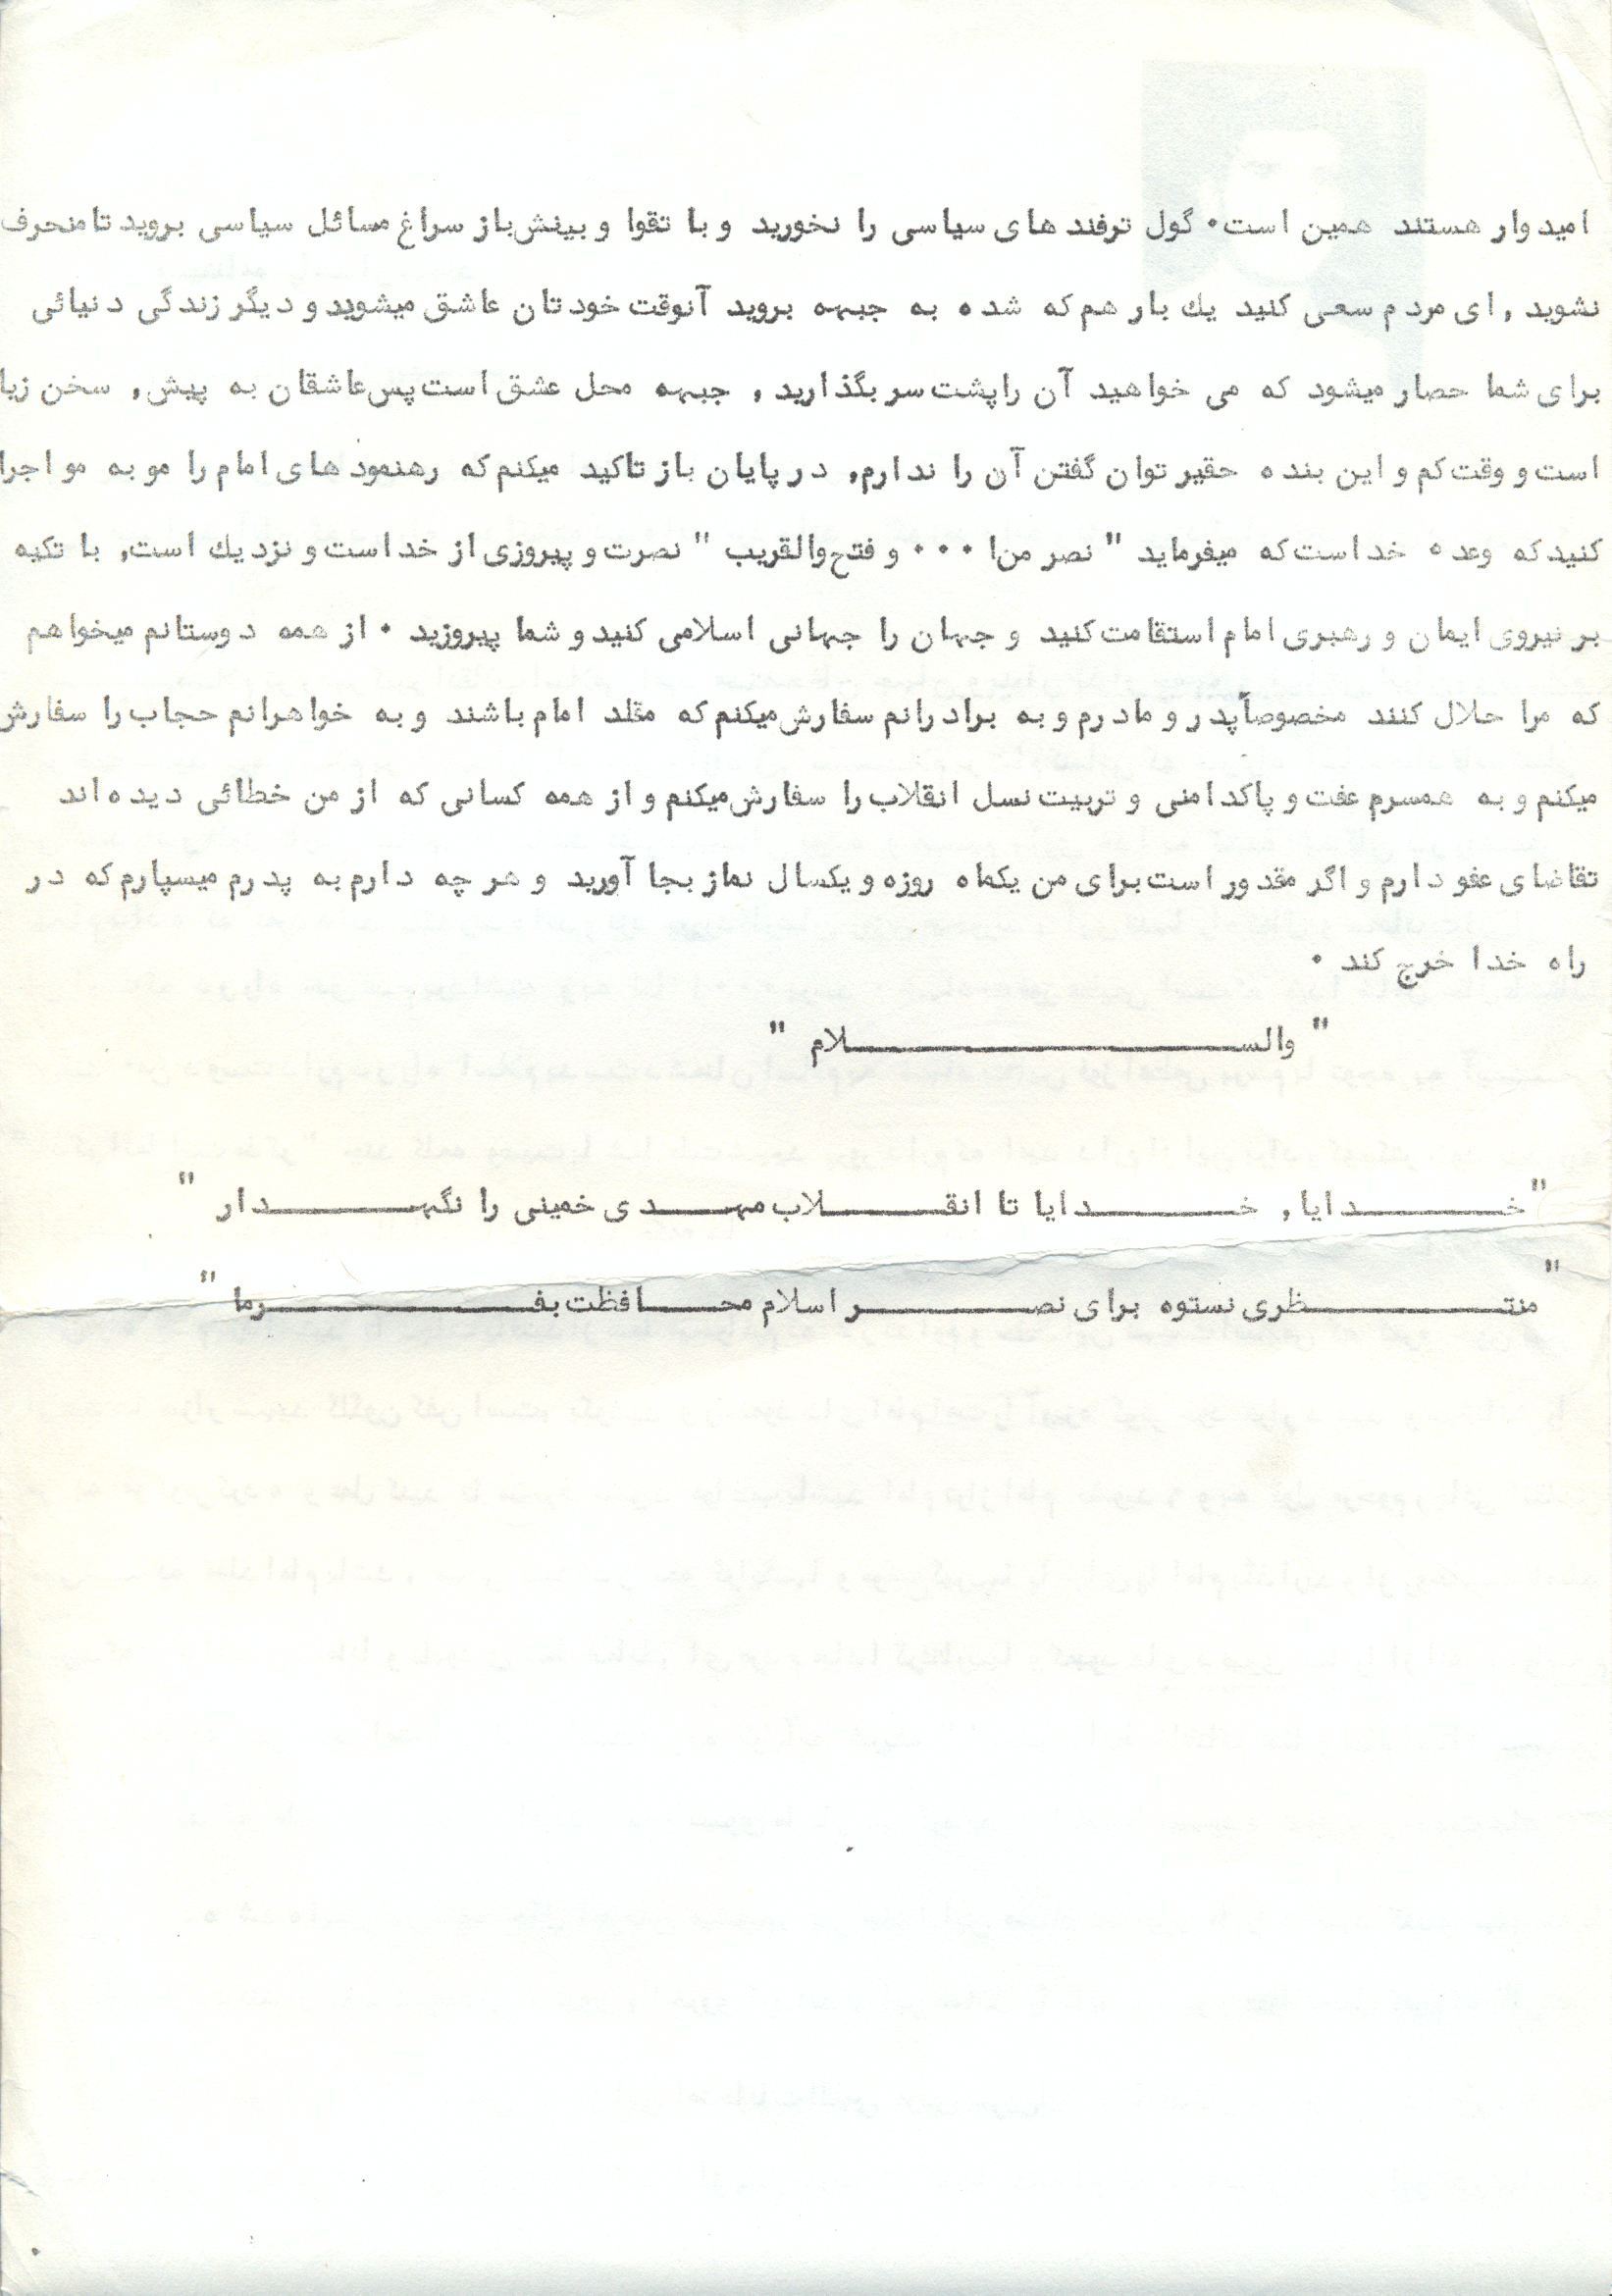 امیدوار هستند همین است۰ گول ترفند های سیاسی را نخورید و با تقوا و بینش باز سراغ مسائل سیاسی بروید تا منحرف
نشوید , ای مردم سعی کنید یك بار هم که شده به جبهه بروید آنوقت خودتان عاشق میشوید و دیگر زندگی دنیائی
برای شما حصار میشود که می خواهید آن را پشت سر بگذارید , جبهه محل عشق است پس عاشقان به پیش, سخن زیا
است و وقت کم و این بنده حقیر توان گفتن آن را ندارم, در پایان باز تاکید میکنم که رهنمود های امام را مو به مو اجرا
کنید که وعده خداست که میفرماید " نصر من ا ۰۰۰ و فتح والقریب " نصرت و پیروزی از خداست و نزدیك است, با تکیه
بر نیروی ایمان و رهبری امام استقامت کنید و جهان را جهانی اسلامی کنید و شما پیروزید ۰ از همه دوستانم میخواهم
که مرا حلال کنند مخصوصاً پدر و مادرم و به برادرانم سفارش میکنم که مقلد امام باشند و به خواهرانم حجاب را سفارش
میکنم و به همسرم عفت و پاکدامنی و تربیت نسل انقلاب را سفارش میکنم و از همه کسانی که از من خطائی دیده اند
تقاضای عفو دارم و اگر مقدور است برای من یکماه روزه و یکسال نماز بجا آورید و هر چه دارم به پدرم میسپارم که در
راه خدا خرج کند ۰
" والســـــــــــلام "
"خـــــــدایا, خـــــــدایا تا انقـــــــلاب مهــــدی خمینی را نگهـــــــدار "
"منتـــــــظری نستوه برای نصـــــــر اسلام محـــــافظت بفـــــــــــرما "